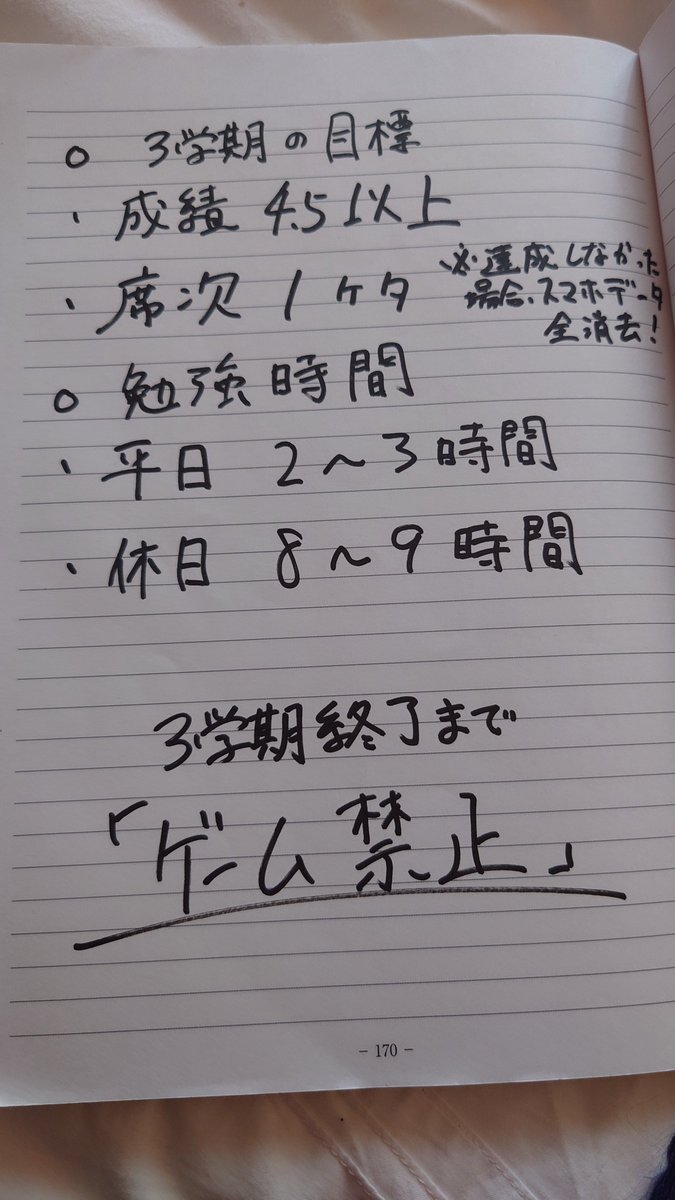 ○ 3学期の目標
・成績 4.5以上
・席次 1ケタ
※達成しなかった
場合、スマホデータ
全消去!
○ 勉強時間
・平日 2〜3時間
・休日 8〜9時間
3学期終了まで
「ゲーム禁止」
- 170 -